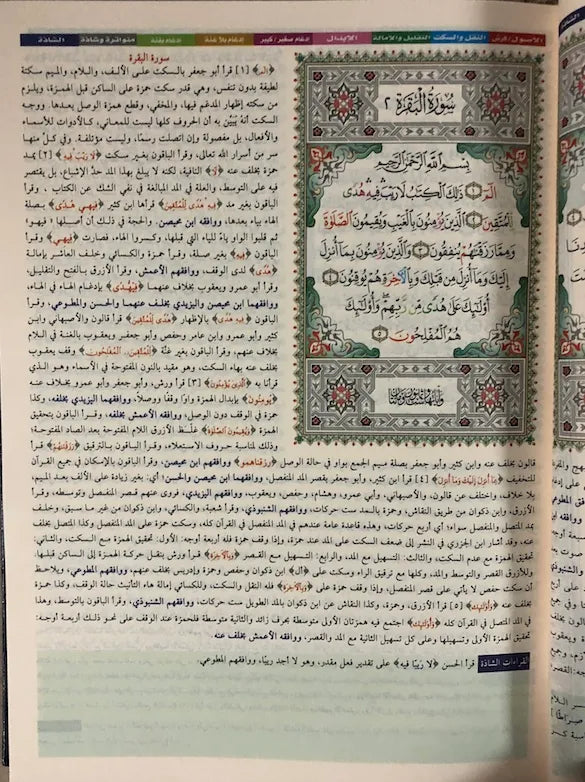 الأصول/فرش النقل والسكت التقليل والإمالة الإبدال إدغام صغير/كبير إدغام بلا غنة إدغام بغنة متواترة وشاذة الشاذة
سورة البقرة
﴿الم﴾ [١] قرأ أبو جعفر بالسكت على الألف، واللام، والميم سكتة
لطيفة بدون تنفس، وهي قدر سكت حمزة على الساكن قبل الهمزة، ويلزم
من سكته إظهار المدغم فيها، والمخفي، وقطع همزة الوصل بعدها. ووجه
السكت أنه يُبَيِّن به أن الحروف كلها ليست للمعاني، كالأدوات للأسماء
والأفعال، بل مفصولة وإن اتصلت رسمًا، وليست مؤتلفة. وفي كل منها
سر من أسرار الله تعالى، وقرأ الباقون بغير سكت ﴿لا رَيْبَ فِيهِ﴾ [٢] يمد
حمزة بخلف عنه «لا» النافية، لكنه لا يبلغ بهذا المد حدّ الإشباع، بل يقتصر
فيه على التوسط، والعلة في المد المبالغة في نفي الشك عن الكتاب، وقرأ
الباقون بغير مد ﴿فِيهِ هُدًى لِلْمُتَّقِينَ﴾ قرأها ابن كثير ﴿فيهي هدى﴾ بصلة
الهاء بياء بعدها، ووافقه ابن محيصن. والحجة في ذلك أن أصلها «فيهو»
ثم قلبوا الواو ياءً للياء التي قبلها، وكسروا الهاء، فصارت ﴿فيهي﴾ وقرأ
الباقون ﴿فيهِ﴾ بغير صلة، وقرأ حمزة والكسائي وخلف العاشر بإمالة
﴿هُدًى﴾ لدى الوقف، ووافقهم الأعمش، وقرأ الأزرق بالفتح والتقليل،
وقرأ أبو عمرو ويعقوب بخلف عنهما بإدغام الهاء في الهاء،
ووافقهما ابن محيصن واليزيدي بخلف عنهما والحسن والمطوعي، وقرأ
الباقون ﴿فِيهِ هُدًى﴾ بالإظهار ﴿هُدًى لِلْمُتَّقِينَ﴾ قرأ قالون والأصبهاني وابن
كثير وأبو عمرو وابن عامر وحفص وأبو جعفر ويعقوب بالغنة في اللام
بخلاف عنهم، وقرأ الباقون بغير غنّة ﴿لِلْمُتَّقِينَ، الْمُفْلِحُونَ﴾ وقف يعقوب
بخلف عنه بهاء السكت، وهو مقيد بالنون المفتوحة في الأسماء وهو الذي
قرأنا به ﴿الَّذِينَ يُؤْمِنُونَ﴾ [٣] قرأ ورش، وأبو جعفر وأبو عمرو بخلاف عنه
﴿يُومِنُونَ﴾ بإبدال الهمزة واوًا وقفًا ووصلًا، ووافقهم اليزيدي بخلفه، وكذا
حمزة في الوقف دون الوصل، ووافقه الأعمش بخلفه، وقرأ الباقون بتحقيق
الهمزة ﴿وَيُقِيمُونَ الصَّلَوٰةَ﴾ غلَّظ الأزرق اللام المفتوحة بعد الصاد المفتوحة؛
وذلك لمناسبة حروف الاستعلاء، وقرأ الباقون بالترقيق ﴿رَزَقْنَاهُمْ﴾ قرأ
قالون بخلف عنه وابن كثير وأبو جعفر بصلة ميم الجمع بواو في حالة الوصل ﴿رزقناهمو﴾ ووافقهم ابن محيصن، وقرأ الباقون بالإسكان في جميع القرآن
للتخفيف ﴿بِمَا أُنْزِلَ إِلَيْكَ وَمَا أُنْزِلَ﴾ [٤] قرأ ابن كثير، وأبو جعفر بقصر المد المنفصل، ووافقهما ابن محيصن والحسن؛ أي: بغير زيادة على الألف بعد الميم،
بلا خلاف، واختلف عن قالون، والأصبهاني، وأبي عمرو، وهشام، وحفص، ويعقوب، ووافقهم اليزيدي، فروى عنهم قصر المنفصل وتوسطه، وقرأ
الأزرق، وابن ذكوان من طريق النقاش، وحمزة بالمد ست حركات، ووافقهم الشنبوذي، وقرأ شعبة، والكسائي، وابن ذكوان من غير ما سبق، وخلف
المد المنفصل سواء؛ أي أربع حركات، وهذه قاعدة عامة عندهم في المد المنفصل في القرآن كله، وسكت حمزة على المد المنفصل وكذا المتصل بخلف
عنه، وقد أشار ابن الجزري في النشر إلى ضعف السكت على المد عند حمزة، وإذا وقف حمزة فله أربعة أوجه: الأول: تحقيق الهمزة مع السكت، والثاني:
تحقيق الهمزة مع عدم السكت، والثالث: التسهيل مع المد، والرابع: التسهيل مع القصر ﴿وَبِالْآخِرَةِ﴾ قرأ ورش بنقل حركة الهمزة إلى الساكن قبلها،
وللأزرق القصر والتوسط والمد، وكلها مع ترقيق الراء وسكت على (أل) ابن ذكوان وحفص وحمزة وإدريس بخلف عنهم، ووافقهم المطوعي، ويلاحظ
أن سكت حفص لا يأتي على قصر المنفصل، وإذا وقف حمزة على ﴿وَبِالْآخِرَةِ﴾ فله النقل والسكت، وللكسائي إمالة هاء التأنيث حالة الوقف، وكذا حمزة
بخلف عنه ﴿وَأُولَٰئِكَ﴾ [٥] قرأ الأزرق، وحمزة، وكذا النقاش عن ابن ذكوان بالمد الطويل ست حركات، ووافقهم الشنبوذي، وقرأ الباقون بالتوسط، وهذا
في المد المتصل في القرآن كله ﴿وَأُولَٰئِكَ﴾ اجتمع فيه همزتان الأولى متوسطة بحرف زائد والثانية متوسطة فلحمزة عند الوقف على نحو ذلك أربعة أوجه:
تحقيق الهمز الأول وتسهيلها وعلى كل تسهيل الثانية مع المد والقصر، ووافقه الأعمش بخلف عنه.
القراءات الشاذة قرأ الحسن ﴿لَا رَيْبًا فِيهِ﴾ على تقدير فعل مقدر، وهو لا أجد ريبًا، ووافقهم المطوعي.
سُورَةُ الْبَقَرَةِ ٢
بِسْمِ اللَّهِ الرَّحْمَٰنِ الرَّحِيمِ
الم ١ ذَٰلِكَ الْكِتَابُ لَا رَيْبَ فِيهِ هُدًى
لِلْمُتَّقِينَ ٢ الَّذِينَ يُؤْمِنُونَ بِالْغَيْبِ وَيُقِيمُونَ الصَّلَوٰةَ
وَمِمَّا رَزَقْنَاهُمْ يُنْفِقُونَ ٣ وَالَّذِينَ يُؤْمِنُونَ بِمَا أُنْزِلَ
إِلَيْكَ وَمَا أُنْزِلَ مِنْ قَبْلِكَ وَبِالْآخِرَةِ هُمْ يُوقِنُونَ ٤
أُولَٰئِكَ عَلَىٰ هُدًى مِنْ رَبِّهِمْ وَأُولَٰئِكَ
هُمُ الْمُفْلِحُونَ ٥